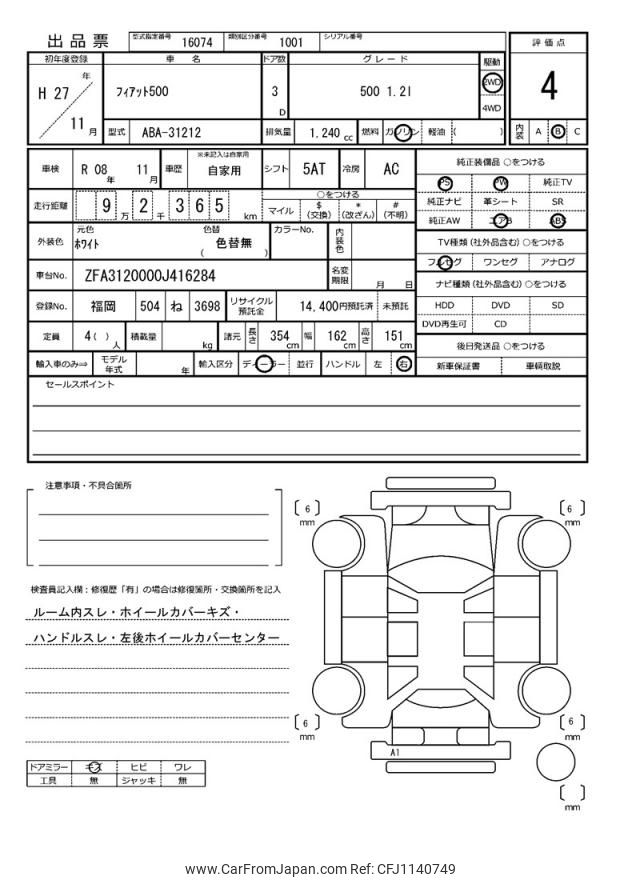 出品票
型式指定番号 16074 類別区分番号 1001 シリアル番号
評価点
初年度登録 車名 ドア数 グレード 駆動
H 27 年 フィアット500 3 D 500 1.2l 2WD 4
11 月 4WD
型式 ABA-31212 排気量 1.240 cc 燃料 ガソリン 軽油 ( ) 内装 A B C
車検 R 08 年 11 月 車歴 ※未記入は自家用 自家用 シフト 5AT 冷房 AC
純正装備品 ○をつける
PS PW 純正TV
走行距離 9 万 2 千 3 6 5 km ○をつける
マイル $ (交換) * (改ざん) # (不明)
純正ナビ 革シート SR
純正AW エアB ABS
外装色 元色 ホワイト 色替 色替無 ( ) カラーNo. 内装色
TV種類(社外品含む) ○をつける
フルセグ ワンセグ アナログ
車台No. ZFA3120000J416284 名変期限 月 日
ナビ種類(社外品含む) ○をつける
登録No. 福岡 504 ね 3698 リサイクル預託金 14,400円預託済 未預託
HDD DVD SD
DVD再生可 CD
定員 4( ) 人 積載量 kg 諸元 長さ 354 cm 幅 162 cm 高さ 151 cm
後日発送品 ○をつける
輸入車のみ⇒ モデル年式 年 輸入区分 ディーラー 並行 ハンドル 左 右
新車保証書 車輌取説
セールスポイント
注意事項・不具合箇所
6 mm
6 mm
検査員記入欄:修復歴「有」の場合は修復箇所・交換箇所を記入
ルーム内スレ・ホイールカバーキズ・
ハンドルスレ・左後ホイールカバーセンター
6 mm
6 mm
A1
ドアミラー キズ ヒビ ワレ
工具 無 ジャッキ 無
mm
www.CarFromJapan.com Ref: CFJ1140749